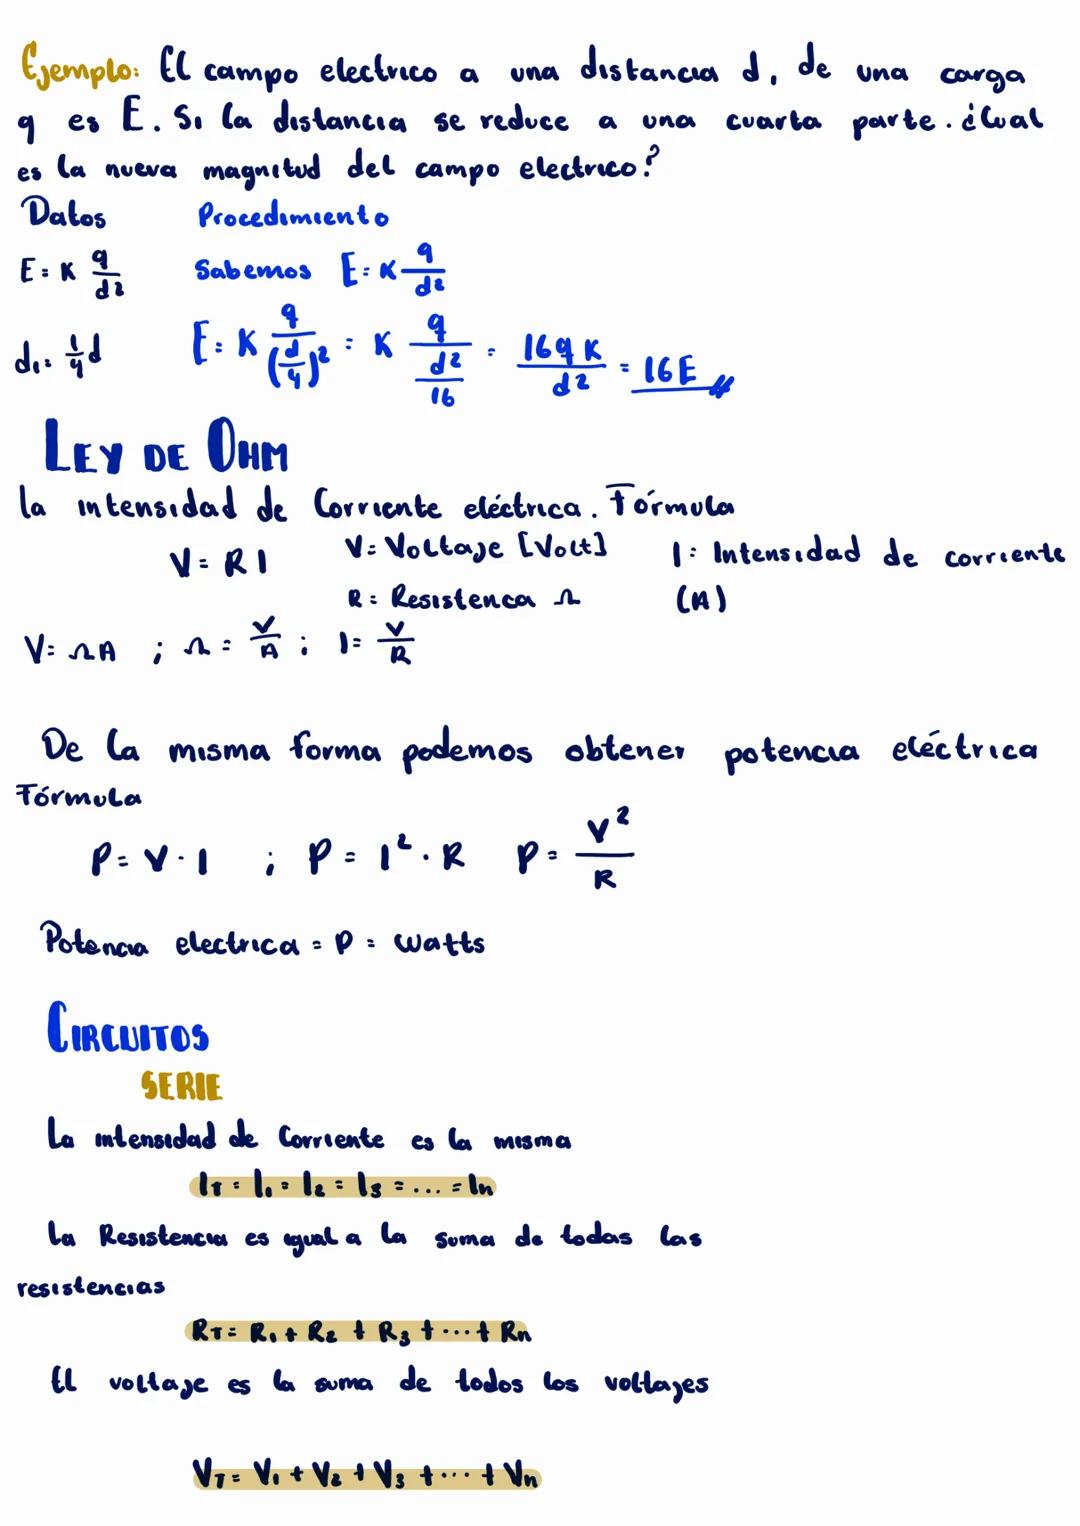 Ejemplo: El campo electrico a una distancia d, de una carga
q es E. Si la distancia se reduce a una cuarta parte. ¿Cual
es la nueva magnitud del campo electrico?
Datos Procedimiento
E = K q/d² Sabemos E = K q/d²
d₁ = 1/4 d E = K q/(d/4)² = K q/(d²/16) = 16qK/d² = 16E
LEY DE OHM
la intensidad de Corriente eléctrica. Fórmula
V = RI V = Voltaje [Volt] I = Intensidad de corriente
R = Resistenca Ω (A)
V = ΩA ; Ω = V/A ; I = V/R
De la misma forma podemos obtener potencia eléctrica
Fórmula
P = V · I ; P = I² · R P = V²/R
Potencia electrica = P = Watts
CIRCUITOS
SERIE
La intensidad de Corriente es la misma
I_T = I₁ = I₂ = I₃ = ... = In
La Resistencia es igual a la suma de todas las
resistencias
R_T = R₁ + R₂ + R₃ + ... + Rn
El voltaje es la suma de todos los voltajes
V_T = V₁ + V₂ + V₃ + ... + Vn